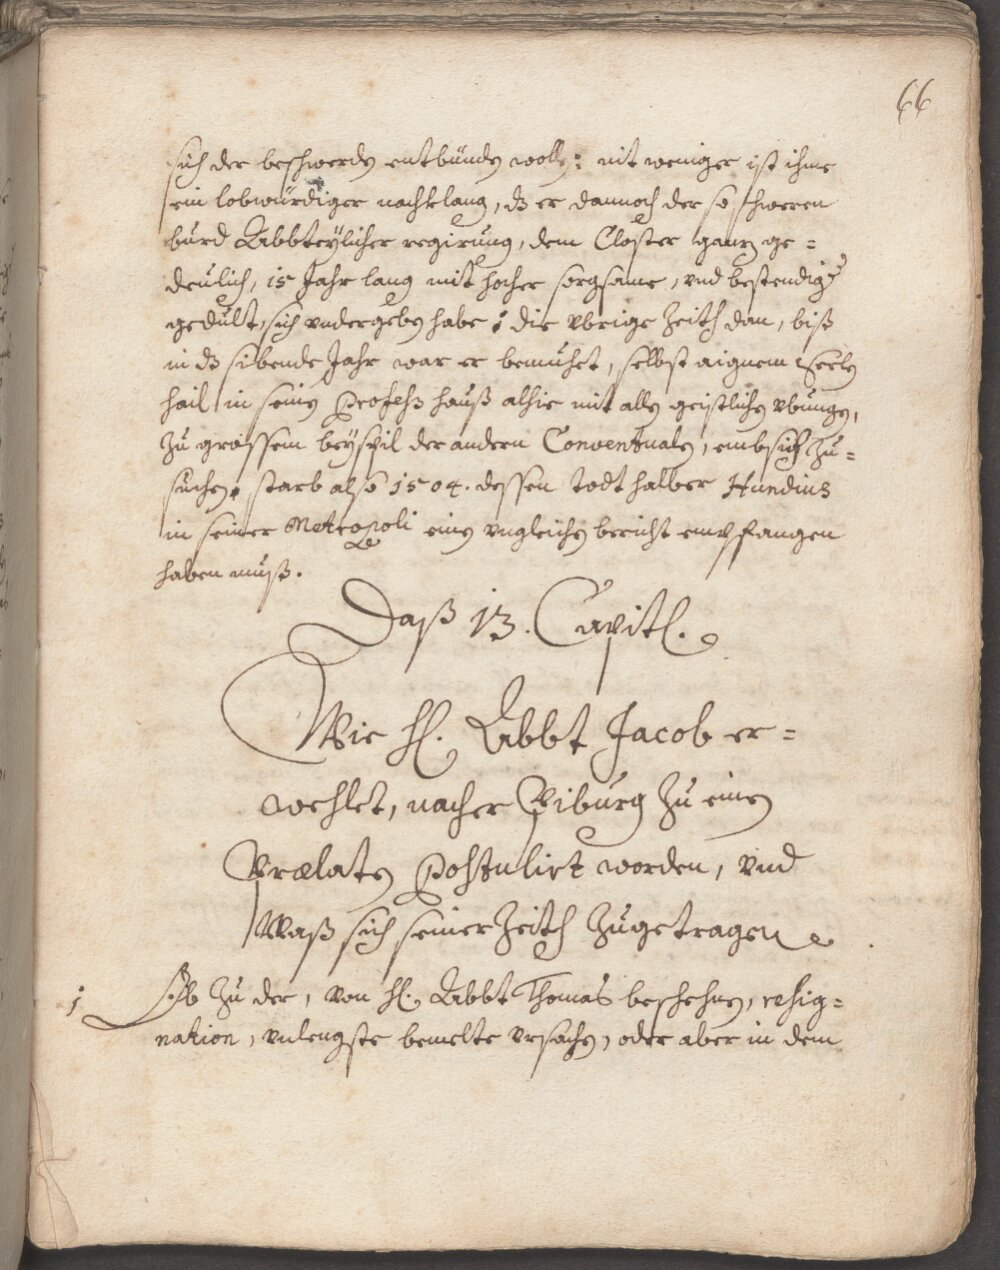 66
sich der beschwerden entbünden wollen: nit weniger ist ihme
ein lobwürdiger nachklang, dz er dannoch der so schweren
burd Abbteylicher regirung, dem Closter ganz ge=
deulich, 15 Jahr lang mit hocher sorgsame, vnd bestendiger
gedult, sich vndergeben habe; die vbrige Zeith dan, biß
in dz sibende Jahr war er bemühet, selbst aignem Seelen
hail in seinen Profess hauß alhie mit allen geistlichen vbungen,
zu grossem beyspil der andern Conventualen, embsich zu=
suchen, starb also 1504. dessen todt halber Hundius
in seiner Metropoli einen vngleichen bericht empfangen
haben muß.
Daß 13. Capitl.
Wie H. Abbt Jacob er=
wehlet, nacher Biburg zu einen
Prælaten postulirt worden, vnd
Waß sich seiner Zeith zugetragen
1 Ob zu der, von H. Abbt Thomas beschehnen, resig=
nation, vnlengste bemelte vrsachen, oder aber in dem